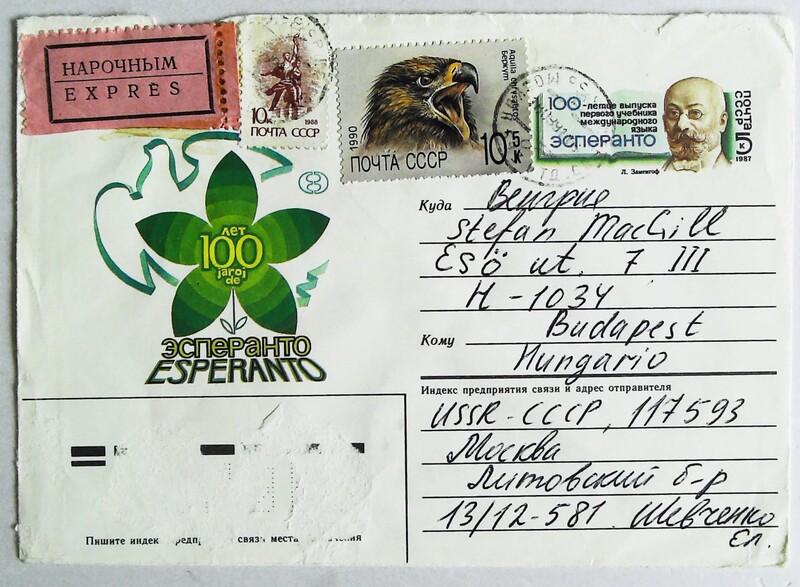 НАРОЧНЫМ
EXPRÈS
10к 1988
ПОЧТА СССР
1990
ПОЧТА СССР
10+5 к
Aquila chrysaetos
Беркут
100-летие выпуска
первого учебника
международного
языка
ЭСПЕРАНТО
Л. Заменгоф
почта
СССР
к
1987
лет
100
jaroj
de
ЭСПЕРАНТО
ESPERANTO
Куда Венгрие
Stefan MacGill
Esö ut. 7 III
H-1034
Кому Budapest
Hungario
Индекс предприятия связи и адрес отправителя
USSR-СССР, 117593
Москва
Литовский б-р
13/12-581. Шевченко
Ел.
Пишите индек связ места